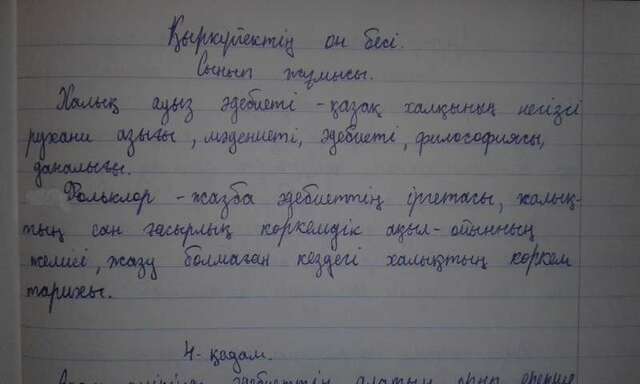 Қыркүйектің он бесі.
Сынып жұмысы.
Халық ауыз әдебиеті - қазақ халқының негізгі
рухани азығы, мәдениеті, әдебиеті, философиясы,
даналығы.
Фольклор - жазба әдебиеттің іргетасы, халық-
тың сан ғасырлық көркемдік ақыл-ойынның
желісі, жазу болмаған кездегі халықтың көркем
тарихы.
4-қадам.
әдебиеттің алатын орны ерекше